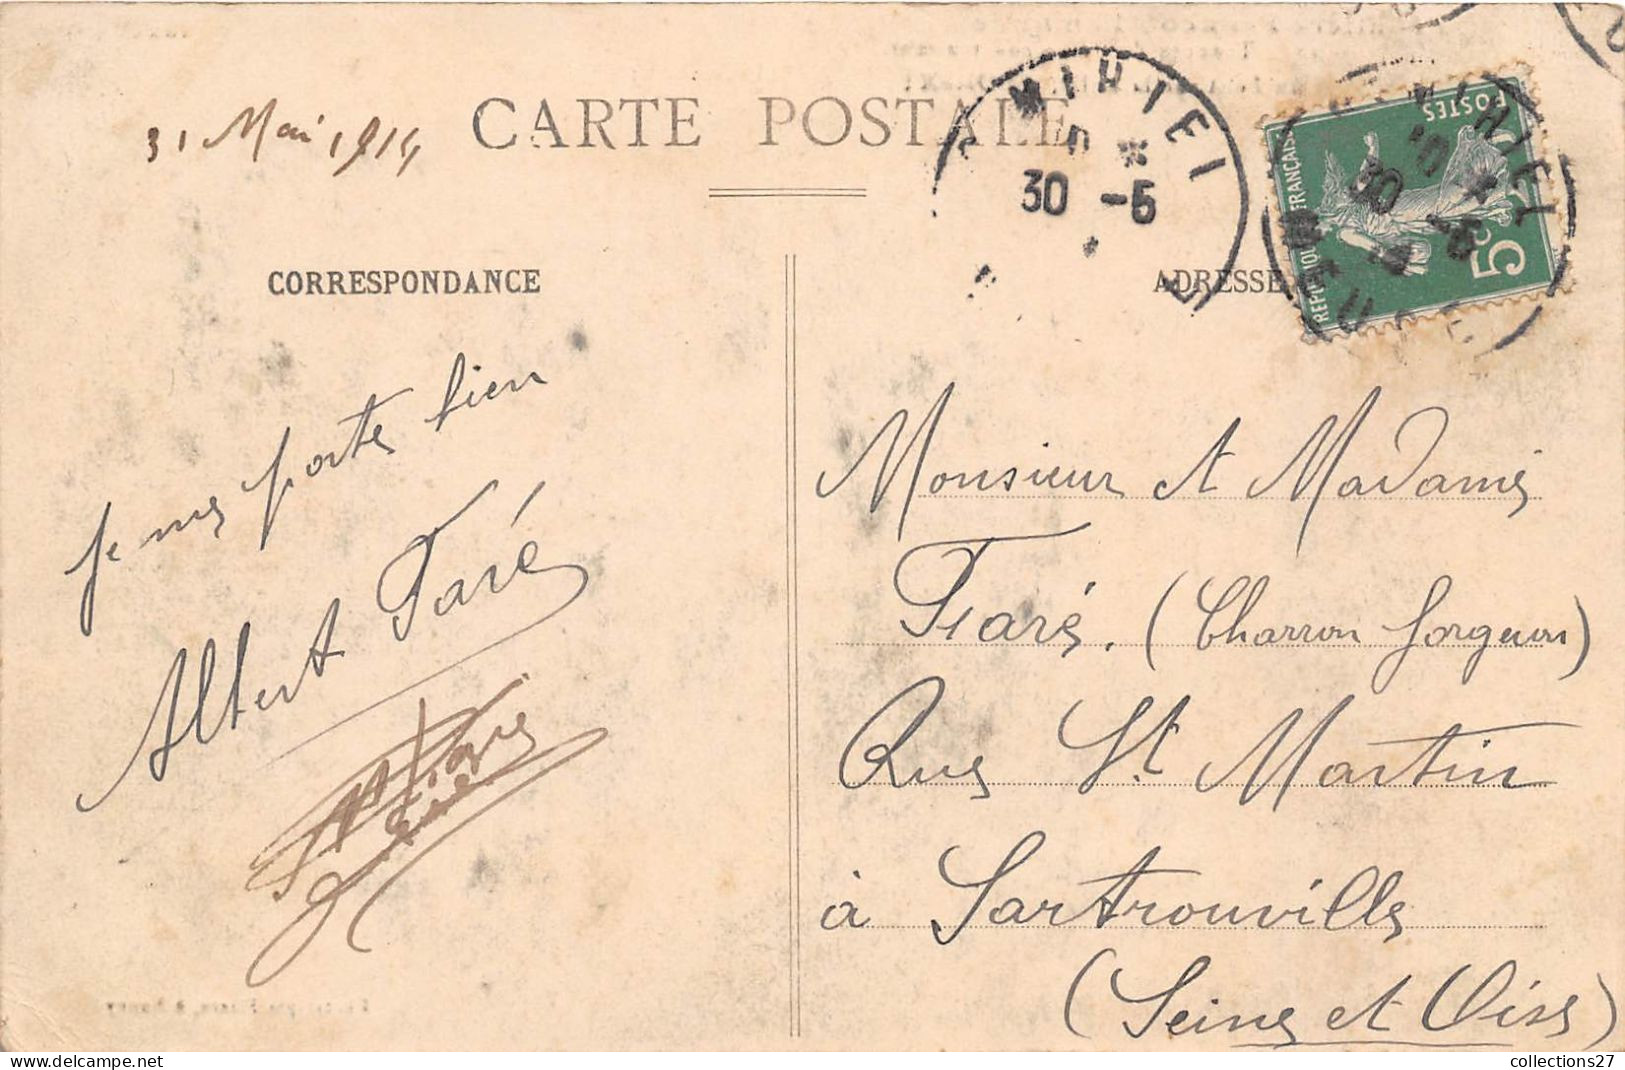 31 Mai 1914
CARTE POSTALE
MIHIEL
30 -5
POSTES
5c
CORRESPONDANCE
ADRESSE
Je me porte bien
Albert Faré
Monsieur et Madame
Faré. (Charron forgeron)
Rue St Martin
à Sartrouville
(Seine et Oise)
collections27